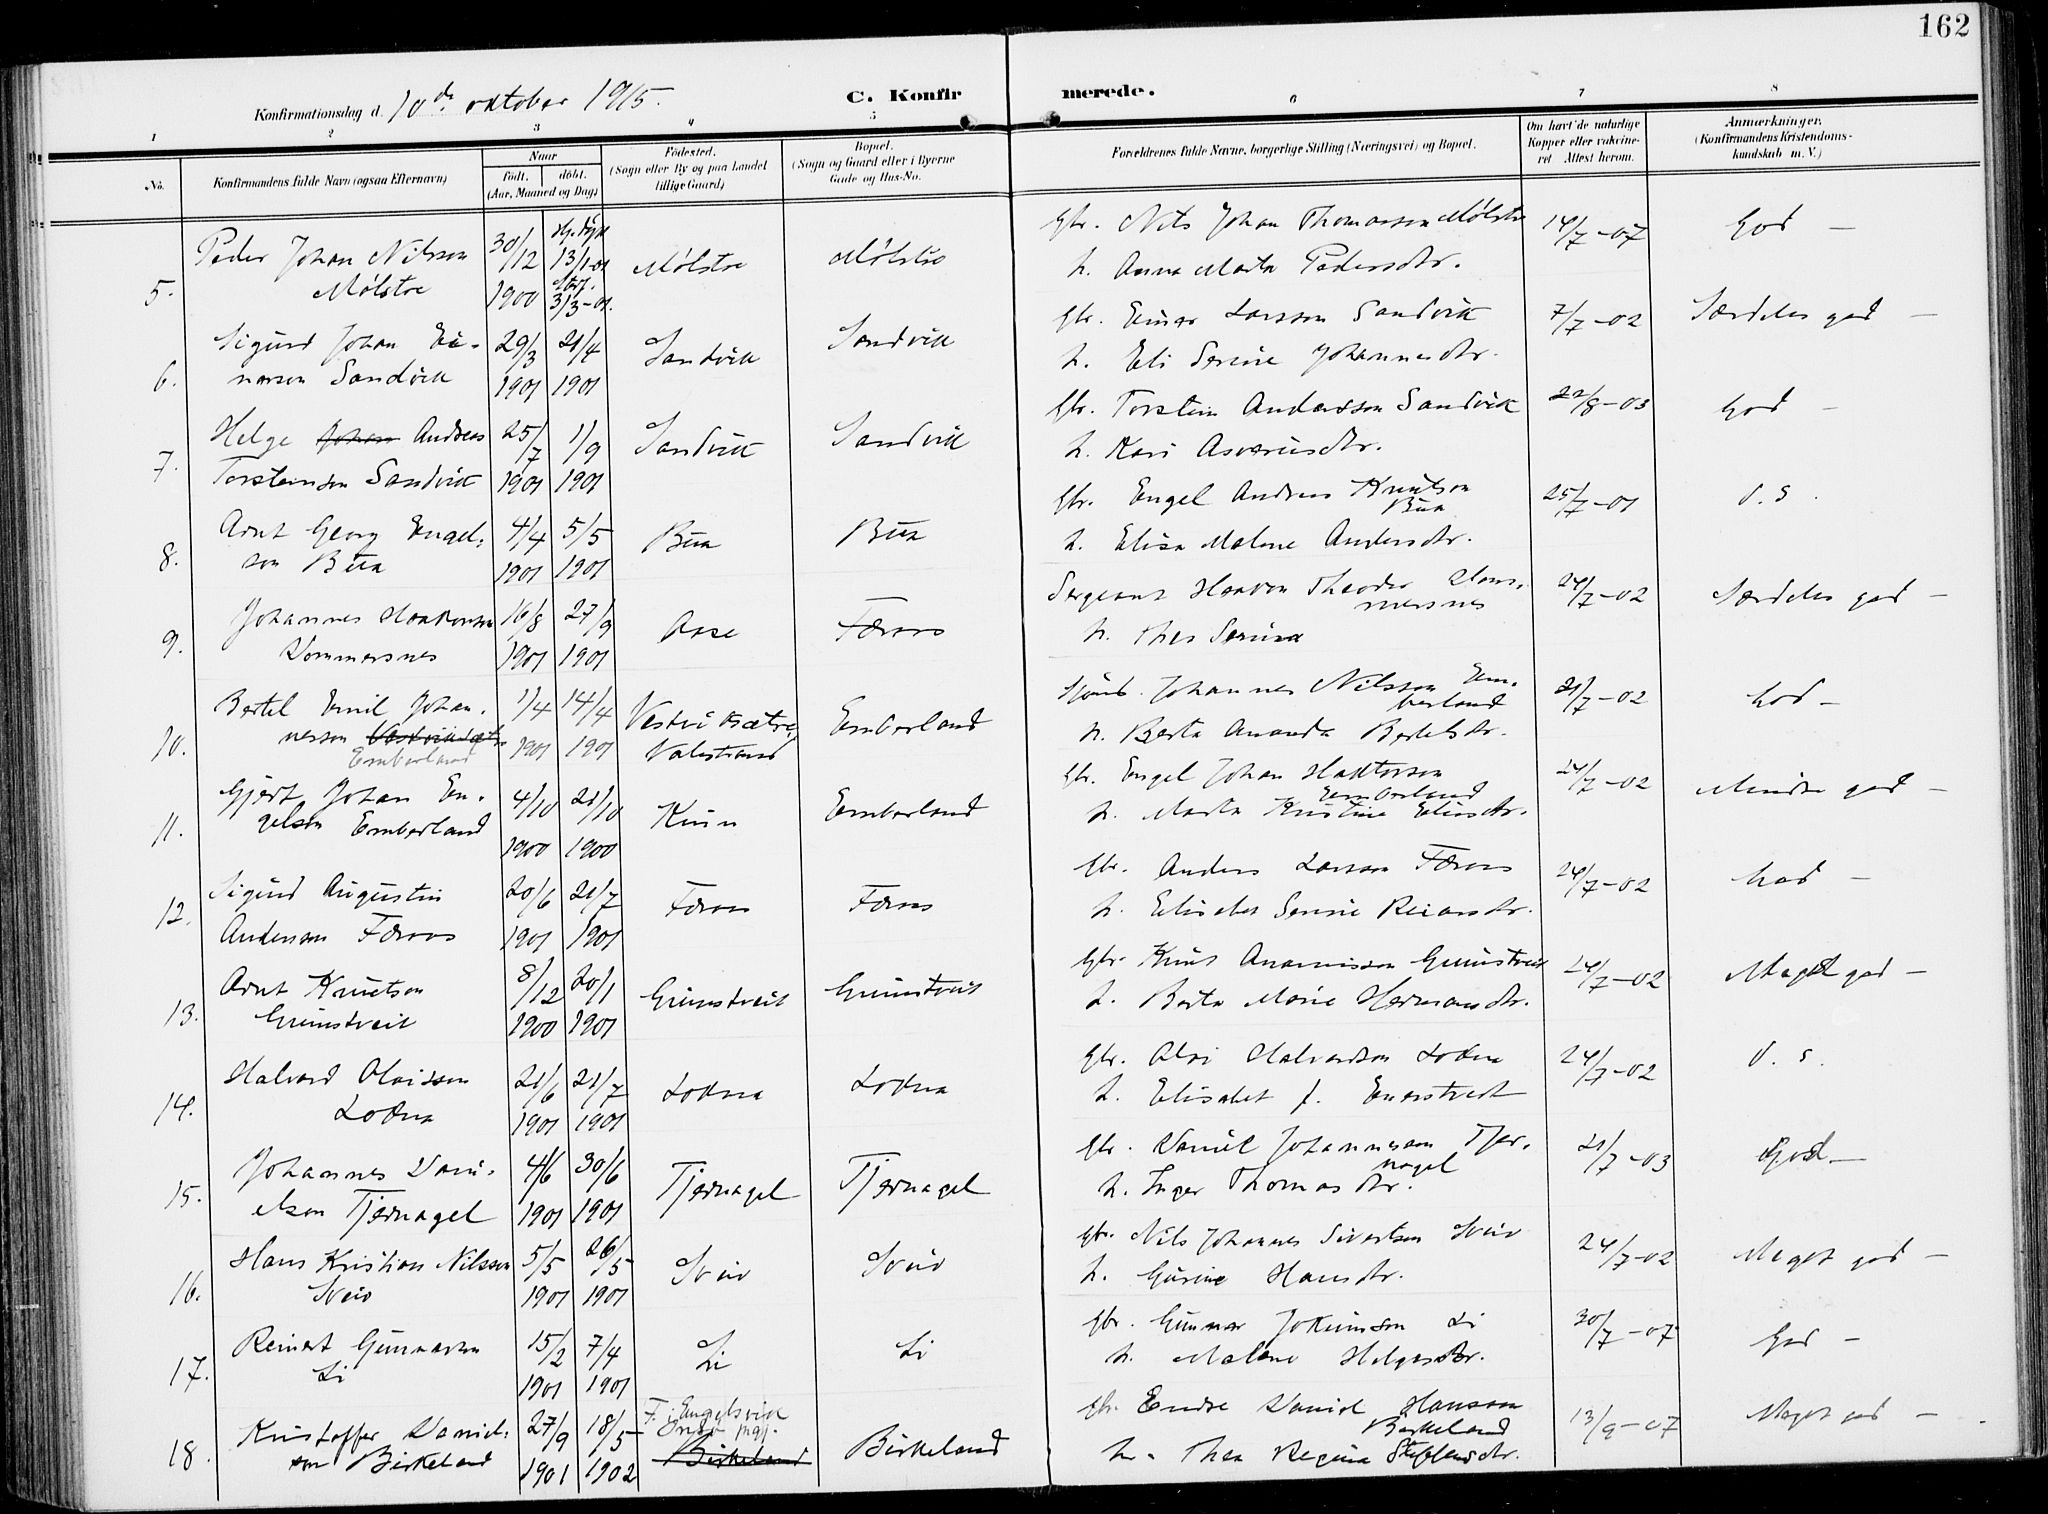 162
Konfirmationsdag d. 10de oktober 1915.
C. Konfirmerede.
1 2 3 4 5 6 7 8
No.
Konfirmandens fulde Navn (ogsaa Efternavn)
Naar
født. døbt.
(Aar, Maaned og Dag)
Fødested.
(Sogn eller By og paa Landet
tillige Gaard)
Bopæl.
(Sogn og Gaard eller i Byerne
Gade og Hus-No.
Forældrenes fulde Navne, borgerlige Stilling (Næringsvei) og Bopæl.
Om havt de naturlige
Kopper eller vakcine-
ret Attest herom.
Anmærkninger.
(Konfirmandens Kristendoms-
kundskab m. V.)
5. Peder Johan Nilsson
Mølstre
30/12 1900
13/1-01
3/3-01.
Mølstre
Mølstre
Gbr. Nils Johan Thomasson Mølstre
h. Anna Marta Pedersdtr.
14/7-07
God —
6. Sigurd Johan Ei-
narson Sandvik
29/3 1901
21/4 1901
Sandvik
Sandvik
Gbr. Einar Larsson Sandvik
h. Eli Serine Johannesdtr.
7/7-02
Særdeles god —
7. Helge Johan Andreas
Torsteinson Sandvik
25/7 1901
1/9 1901
Sandvik
Sandvik
Gbr. Torstein Andersson Sandvik
h. Kari Asveriusdtr.
22/8-03
God —
8. Arnt Georg Engel-
son Bua
4/4 1901
5/5 1901
Bua
Bua
Gbr. Engel Andreas Knutson
Bua
h. Elisa Malene Andersdtr.
25/7-01
d. s.
9. Johannes Haakonson
Vommersnes
16/8 1901
27/9 1901
Aase
Færaas
Sergeant Haakon Theodor Vom-
mersnes
h. Thea Serina
24/7-02
Særdeles god —
10. Bertel Emil Johan-
nesson Vestviksætre
Emberland
1/4 1901
14/4 1901
Vestviksætre,
Valestrand
Emberland
Johannes Nilsson Em-
berland
h. Berta Amanda Bertelsdtr.
21/7-02
God —
11. Gjert Johan En-
gelson Emberland
4/10 1900
21/10 1900
Emberland
Gbr. Engel Johan Haktorson
Emberland
h. Marta Kristine Eliasdtr.
24/7-02
Mindre god —
12. Sigurd Augustin
Anderson Færaas
20/6 1901
21/7 1901
Færaas
Færaas
Gbr. Anders Larsson Færaas
h. Elisabet Serine Reiarsdtr.
24/7-02
God —
13. Arnt Knutson
Grimstveit
8/12 1900
20/1 1901
Grimstveit
Grimstveit
Gbr. Knut Ananiasson Grimstveit
h. Berta Marie Hermansdtr.
24/7-02
Meget god —
14. Halvard Olaisson
Lokna
21/6 1901
21/7 1901
Lokna
Lokna
Gbr. Olai Halvardson Lokna
h. Elisabet f. Enerstvedt
24/7-02
d. s.
15. Johannes Dani-
elson Tjernagel
4/6 1901
30/6 1901
Tjernagel
Tjernagel
Gbr. Daniel Johannesson Tjer-
nagel
h. Inger Thomasdtr.
21/7-03
God —
16. Hans Kristian Nilsson
Sveio
5/5 1901
26/5 1901
Sveio
Sveio
Gbr. Nils Johannes Sivertson Sveio
h. Gurine Hansdtr.
24/7-02
Meget god —
17. Reinert Gunnarson
Li
15/2 1901
7/4 1901
Li
Li
Gbr. Gunnar Jokumson Li
h. Malene Helgesdtr.
30/7-07
God —
18. Kristoffer Daniel-
son Birkeland
27/9 1901
18/5 1902
F. i Engelsvik
Onsø pgj.
Birkeland
Birkeland
Gbr. Endre Daniel Hansson
Birkeland
h. Thea Regina Steffensdtr.
13/9-07
Meget god —